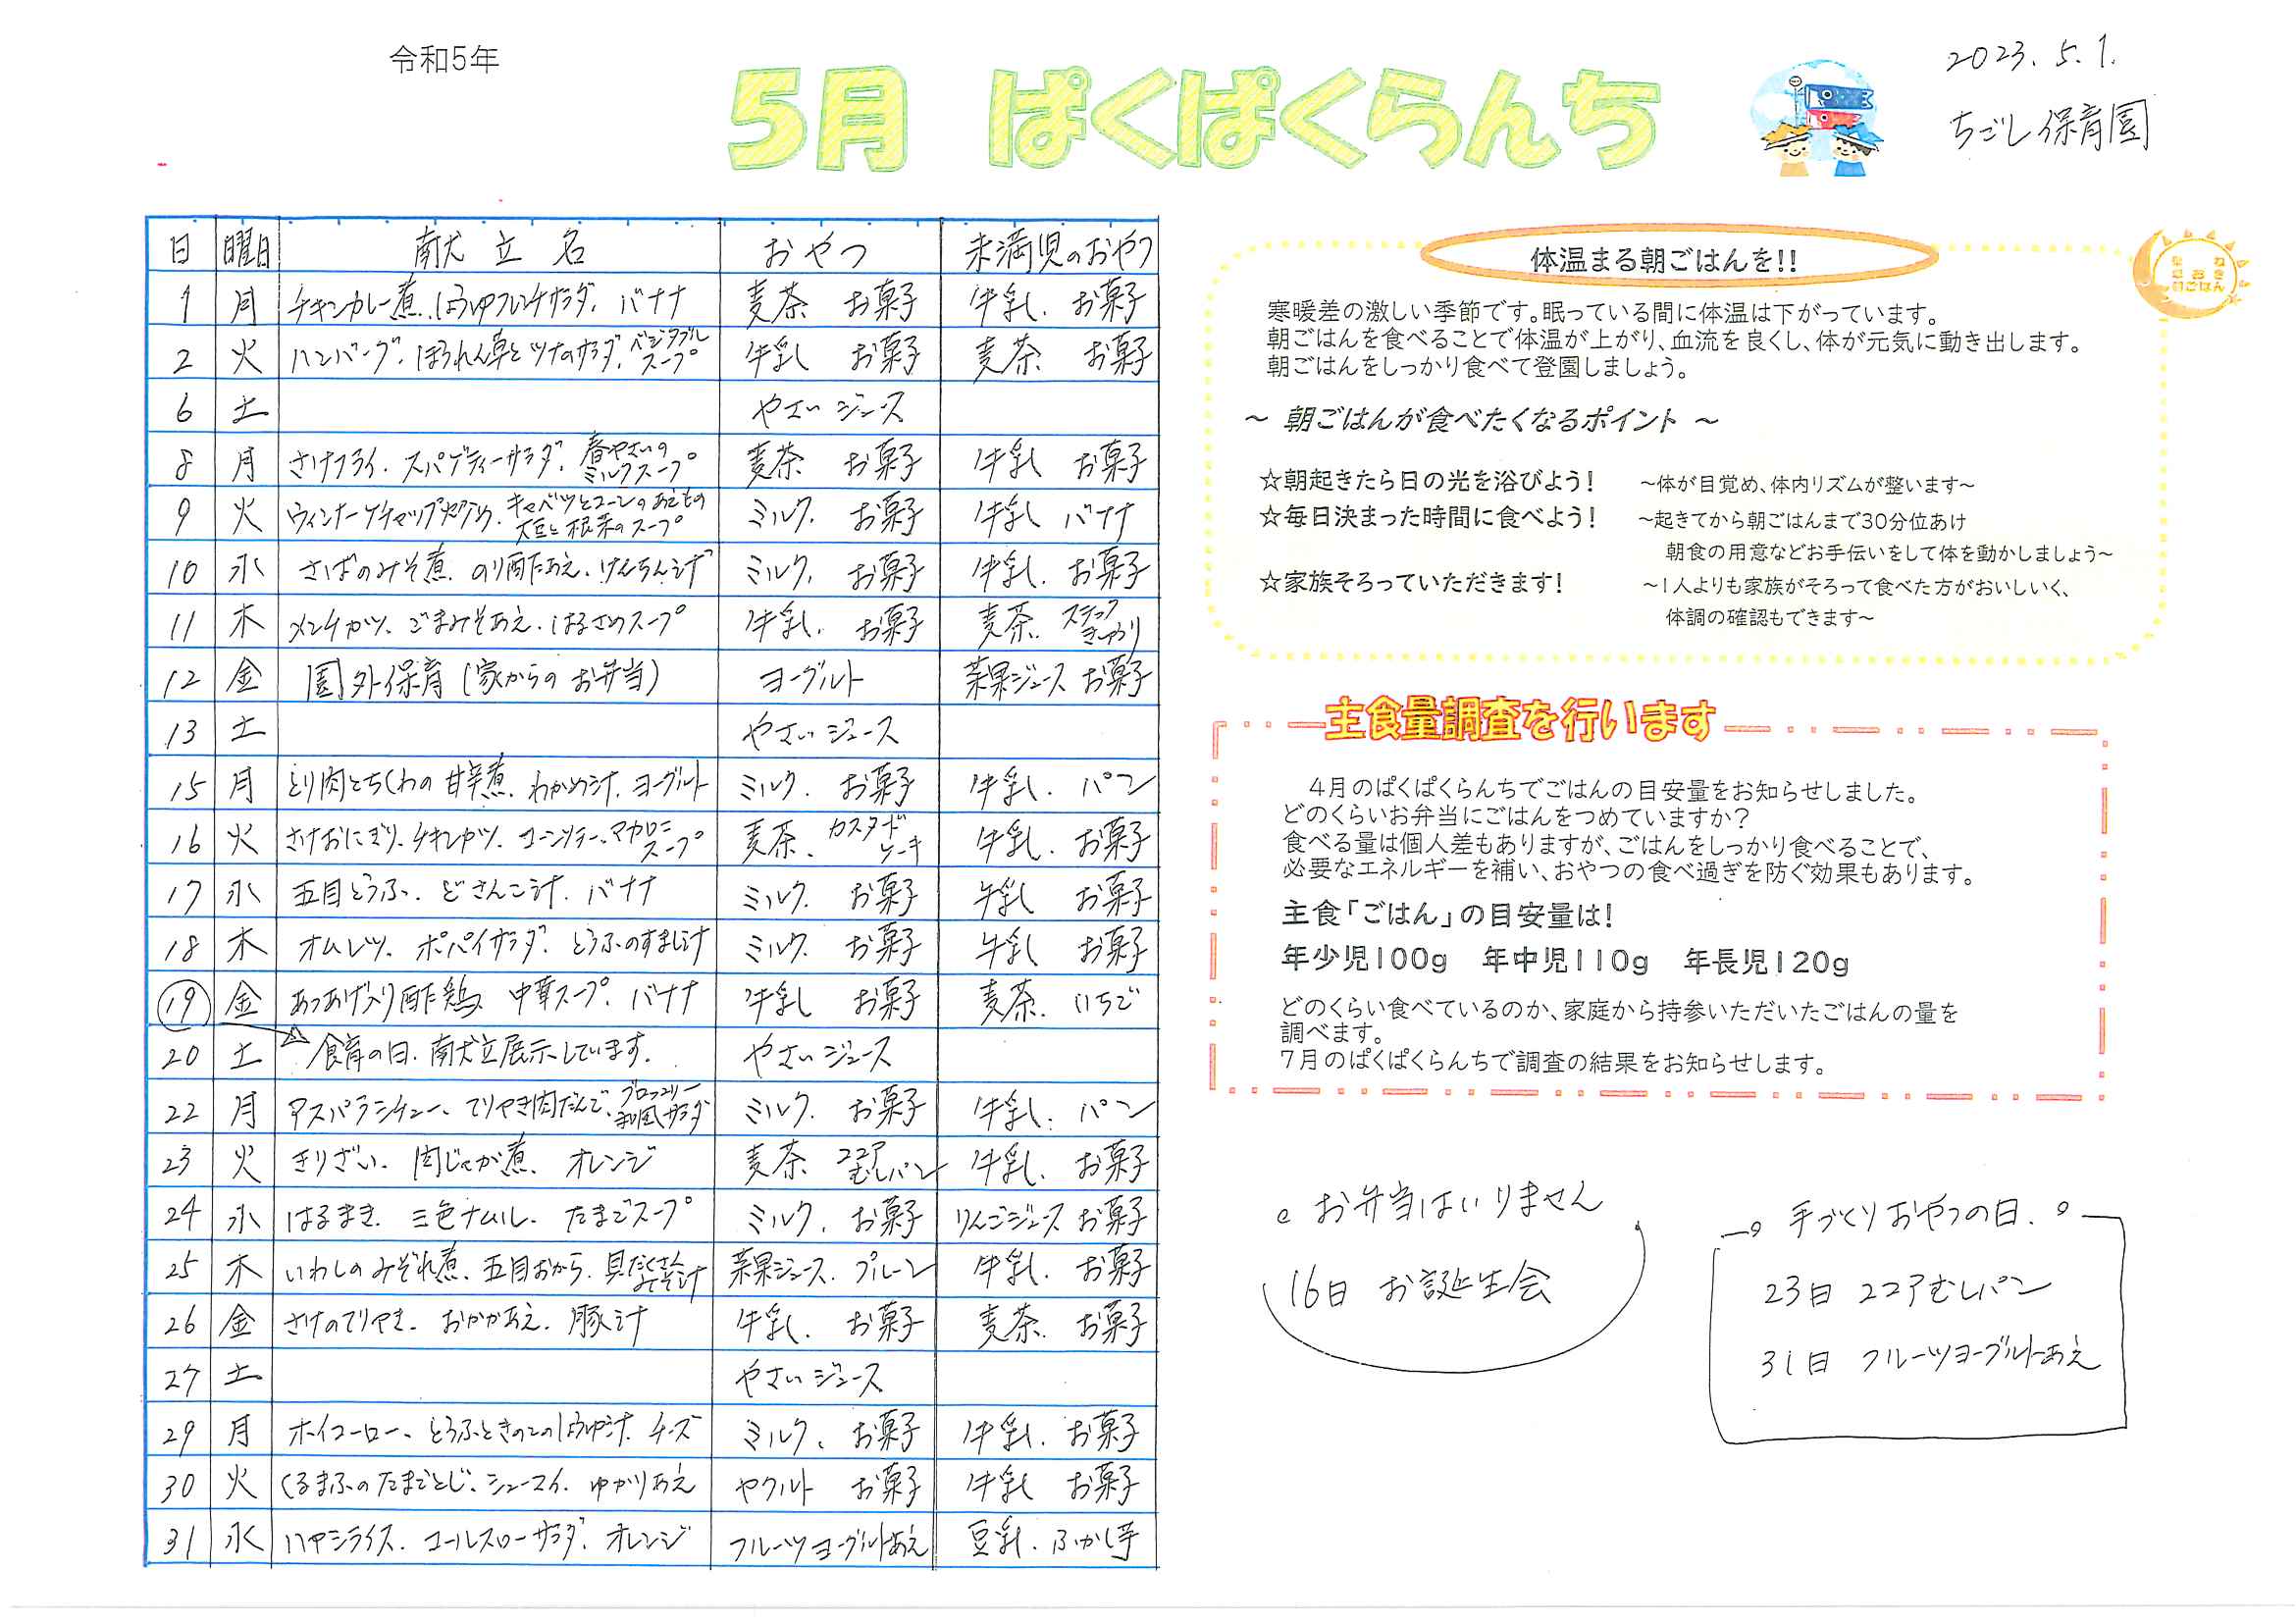 令和5年
5月 ぱくぱくらんち
2023.5.1.
ちごし保育園
日 曜日 献立名 おやつ 未満児のおやつ
1 月 チキンカレー煮、しょうゆフレンチサラダ、バナナ 麦茶 お菓子 牛乳、お菓子
2 火 ハンバーグ、ほうれん草とツナのサラダ、ベジタブルスープ 牛乳 お菓子 麦茶、お菓子
6 土 やさいジュース
8 月 さけフライ、スパゲティーサラダ、春やさいのミルクスープ 麦茶 お菓子 牛乳 お菓子
9 火 ウィンナーケチャップ炒め、キャベツとコーンのあえもの 大豆と根菜のスープ ミルク、お菓子 牛乳 バナナ
10 水 さばのみそ煮、のり酢あえ、けんちん汁 ミルク、お菓子 牛乳、お菓子
11 木 メンチカツ、ごまみそあえ、はるさめスープ 牛乳、お菓子 麦茶、スティックきゅうり
12 金 園外保育(家からのお弁当) ヨーグルト 菜果ジュース お菓子
13 土 やさいジュース
15 月 とり肉とちくわの甘辛煮、わかめ汁、ヨーグルト ミルク、お菓子 牛乳、パン
16 火 さけおにぎり、チキンカツ、コーンソテー、マカロニスープ 麦茶、カスタードケーキ 牛乳、お菓子
17 水 五目とうふ、どさんこ汁、バナナ ミルク、お菓子 牛乳 お菓子
18 木 オムレツ、ポパイサラダ、とうふのすまし汁 ミルク、お菓子 牛乳 お菓子
19 金 あつあげ入り酢鶏、中華スープ、バナナ 牛乳 お菓子 麦茶、いちご
20 土 食育の日、献立展示しています。 やさいジュース
22 月 アスパラシチュー、てりやき肉だんご、ブロッコリー和風サラダ ミルク、お菓子 牛乳、パン
23 火 きりざい、肉じゃが煮、オレンジ 麦茶 ココアむしパン 牛乳、お菓子
24 水 はるまき、三色ナムル、たまごスープ ミルク、お菓子 りんごジュース お菓子
25 木 いわしのみぞれ煮、五目おから、具だくさんみそ汁 菜果ジュース、プルーン 牛乳、お菓子
26 金 さけのてりやき、おかかあえ、豚汁 牛乳、お菓子 麦茶、お菓子
27 土 やさいジュース
29 月 ホイコーロー、とうふときのこのしょうゆ汁、チーズ ミルク、お菓子 牛乳、お菓子
30 火 くるまふのたまごとじ、シューマイ、ゆかりあえ ヤクルト お菓子 牛乳 お菓子
31 水 ハヤシライス、コールスローサラダ、オレンジ フルーツヨーグルトあえ 豆乳、ふかし芋
体温まる朝ごはんを!!
早ね
早おき
朝ごはん
寒暖差の激しい季節です。眠っている間に体温は下がっています。
朝ごはんを食べることで体温が上がり、血流を良くし、体が元気に動き出します。
朝ごはんをしっかり食べて登園しましょう。
~ 朝ごはんが食べたくなるポイント ~
☆朝起きたら日の光を浴びよう! ~体が目覚め、体内リズムが整います~
☆毎日決まった時間に食べよう! ~起きてから朝ごはんまで30分位あけ
朝食の用意などお手伝いをして体を動かしましょう~
☆家族そろっていただきます! ~1人よりも家族がそろって食べた方がおいしいく、
体調の確認もできます~
主食量調査を行います
4月のぱくぱくらんちでごはんの目安量をお知らせしました。
どのくらいお弁当にごはんをつめていますか?
食べる量は個人差もありますが、ごはんをしっかり食べることで、
必要なエネルギーを補い、おやつの食べ過ぎを防ぐ効果もあります。
主食「ごはん」の目安量は!
年少児100g 年中児110g 年長児120g
どのくらい食べているのか、家庭から持参いただいたごはんの量を
調べます。
7月のぱくぱくらんちで調査の結果をお知らせします。
お弁当はいりません
16日 お誕生会
手づくりおやつの日.
23日 ココアむしパン
31日 フルーツヨーグルトあえ